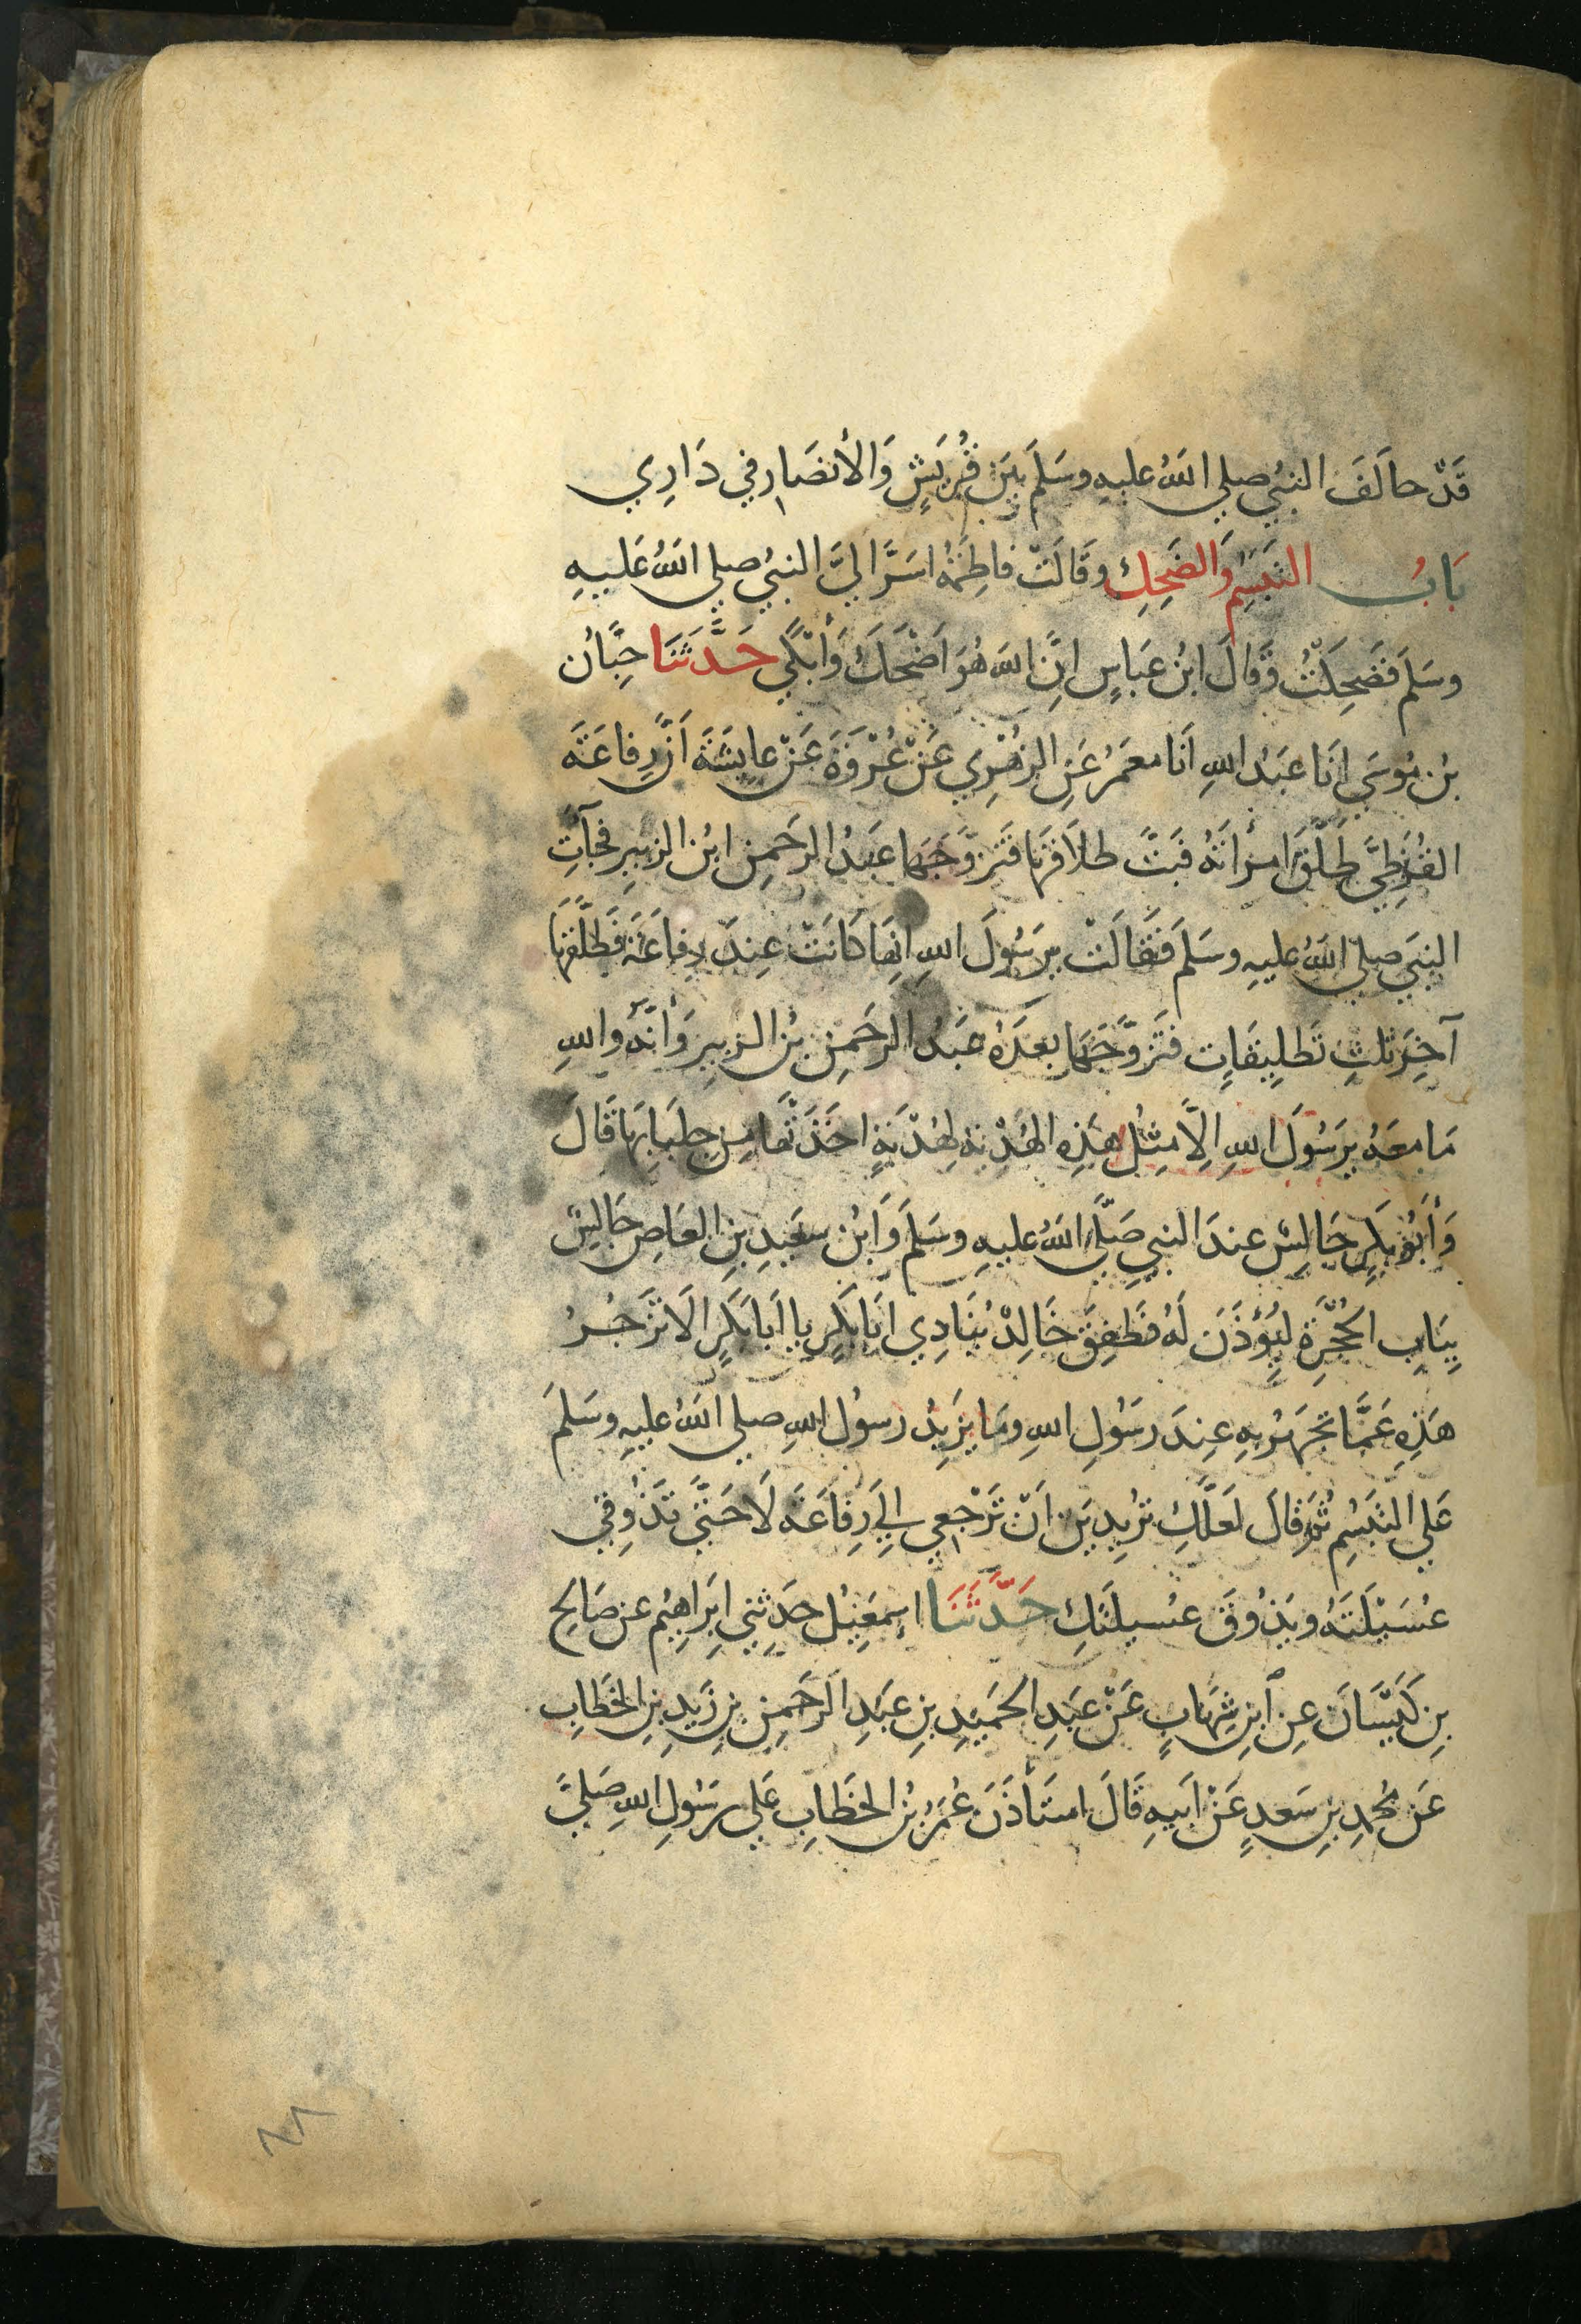 قَدْ حالَفَ النبيُ صلي اللهُ عليهِ وسَلَمَ بَيَن قُرَيشٍ وَالأَنصَارِ في دَارِي
بَابُ التَبَسِمِ وَالضَحِكِ وقَالَتْ فاطِمَةُ اسَرَّ اليَّ النبيُ صلي اللهُ عَليهِ
وسَلَمَ فَضَحِكتُ وَقالَ ابنُ عبَاسٍ اِنَّ اللهَ هُوَ اَضْحَكَ وَأَبْكَي حَدَّثَنَا حِبَّانُ
بنُ مُوسَي اَنَا عبَدُ اللهِ اَنَا معمَرُ عَنِ الزُهْرِي عَنْ عُرْوَةَ عَنْ عايِشَةَ اَنَّ رِفاعَةَ
القُرَظِيَّ طَلَّقَ امرأَتَهُ فبَتَّ طلاَقهَا فَتَزوَّجَهَا عَبدُ الرَحَمِنِ ابْن الزبِيرِ فجَآتِ
النبَيَ صلي اللهُ عليهِ وسَلمَ فَقَالَتْ يرَسُولَ اللهِ اِنهَا كانَتْ عِندَ رِفاعَةَ فَطَلَّقهَا
آخِرَ ثلثِ تَطلِيقَاتٍ فتَزوَّجَهَا بعَدَهُ عبَدُ الرحَمِنِ بْنُ الزبِيرِ وَأَنَّهُ واللهِ
مَا معَهُ يرَسُولَ اللهِ اِلاَّ مِثلُ هَذِهِ الهُدْبَةِ لِهُدْبَةٍ اخَذَتْهَا مِن جِلبَابِهَا قَالَ
وَأَبُو بَكرٍ جَالِسٌ عِندَ النبيِ صَلَّي اللهُ عليهِ وسَلمَ وَابْنُ سعَيدِ بنِ العَاصِ جَالِسٌ
بِبَابِ الحُجْرَةِ لِيُؤذَنَ لَهُ فطَفِقَ خَالِدٌ يُنَادِي ابَا بَكرٍ يا اَبَا بَكرٍ الاَ تزَجُرُ
هَذِهِ عَمَّا تجَهَرُ بِهِ عِندَ رسَوُلِ اللهِ ومَا يزَيدُ رسوُل اللهِ صلي اللهُ عليهِ وسَلمَ
عَلي التبَسُمِ ثُمَّ قالَ لعَلَّكِ ترُيدِينَ اَنْ تَرْجِعي اِلَي رِفاعَةَ لَا حَتَّي تَذُوقي
عُسَيْلَتَهُ ويَذُوقَ عسُيلَتَكِ حَدَّثَنَا اسِمعَيِلُ حدَثِني ابِرَاهِيمُ عن صَالِحِ
بِنِ كَيْسَانَ عنِ ابنِ شِهَابٍ عَنْ عبَدِ الحمَيدِ بنِ عبَدِ الرحَمِنِ بنِ زَيدِ بنِ الخطَابِ
عَن مُحمَدِ بنِ سَعدٍ عَنْ اَبيهِ قَالَ استَأذَنَ عُمَرُ بنُ الخطَابِ عَلي رسَوُلِ اللهِ صَليَّ